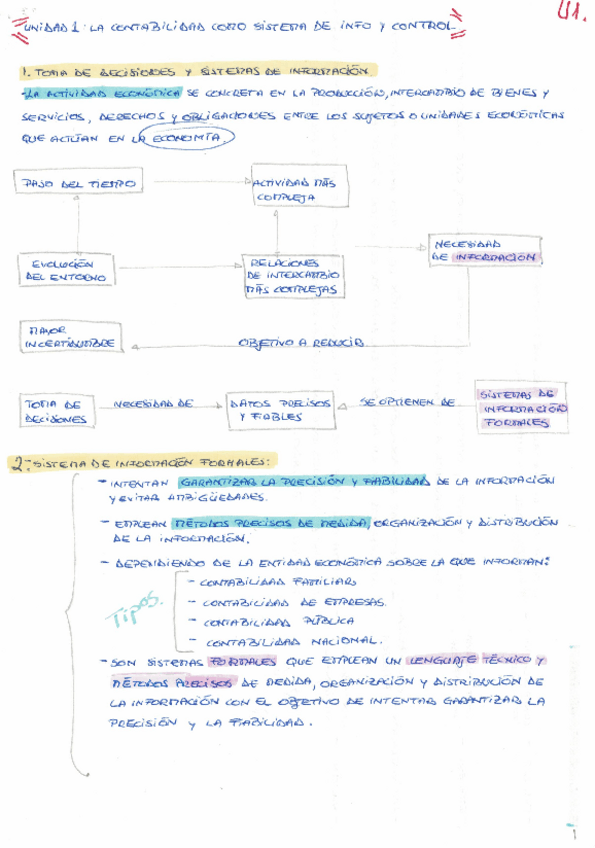 U1.
UNIDAD 1: LA CONTABILIDAD COMO SISTEMA DE INFO Y CONTROL
1. TOMA DE DECISIONES Y SISTEMAS DE INFORMACIÓN.
-LA ACTIVIDAD ECONÓMICA SE CONCRETA EN LA PRODUCCIÓN, INTERCAMBIO DE BIENES Y
SERVICIOS, DERECHOS Y OBLIGACIONES ENTRE LOS SUJETOS O UNIDADES ECONÓMICAS
QUE ACTÚAN EN LA ECONOMÍA.
PASO DEL TIEMPO
ACTIVIDAD MÁS
COMPLEJA
EVOLUCIÓN
DEL ENTORNO
RELACIONES
DE INTERCAMBIO
MÁS COMPLEJAS
NECESIDAD
DE INFORMACIÓN
MAYOR
INCERTIDUMBRE
OBJETIVO A REDUCIR
TOMA DE
DECISIONES
NECESIDAD DE
DATOS PRECISOS
Y FIABLES
SE OBTIENEN DE
SISTEMAS DE
INFORMACIÓN
FORMALES
2.- SISTEMA DE INFORMACIÓN FORMALES:
- INTENTAN GARANTIZAR LA PRECISIÓN Y FIABILIDAD DE LA INFORMACIÓN
Y EVITAR AMBIGÜEDADES.
- EMPLEAN MÉTODOS PRECISOS DE MEDIDA, ORGANIZACIÓN Y DISTRIBUCIÓN
DE LA INFORMACIÓN.
- DEPENDIENDO DE LA ENTIDAD ECONÓMICA SOBRE LA QUE INFORMAN:
Tipos.
- CONTABILIDAD FAMILIAR
- CONTABILIDAD DE EMPRESAS.
- CONTABILIDAD PÚBLICA
- CONTABILIDAD NACIONAL.
- SON SISTEMAS FORMALES QUE EMPLEAN UN LENGUAJE TÉCNICO Y
MÉTODOS PRECISOS DE MEDIDA, ORGANIZACIÓN Y DISTRIBUCIÓN DE
LA INFORMACIÓN CON EL OBJETIVO DE INTENTAR GARANTIZAR LA
PRECISIÓN Y LA FIABILIDAD.
1